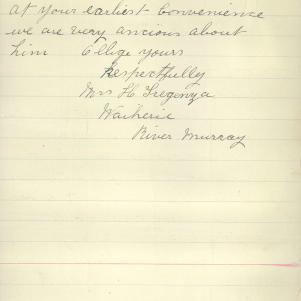 at your earliest convenience
we are very ancious about
him Oblige yours
Respectfully
Mrs H Tregenza
Waikerie
River Murray